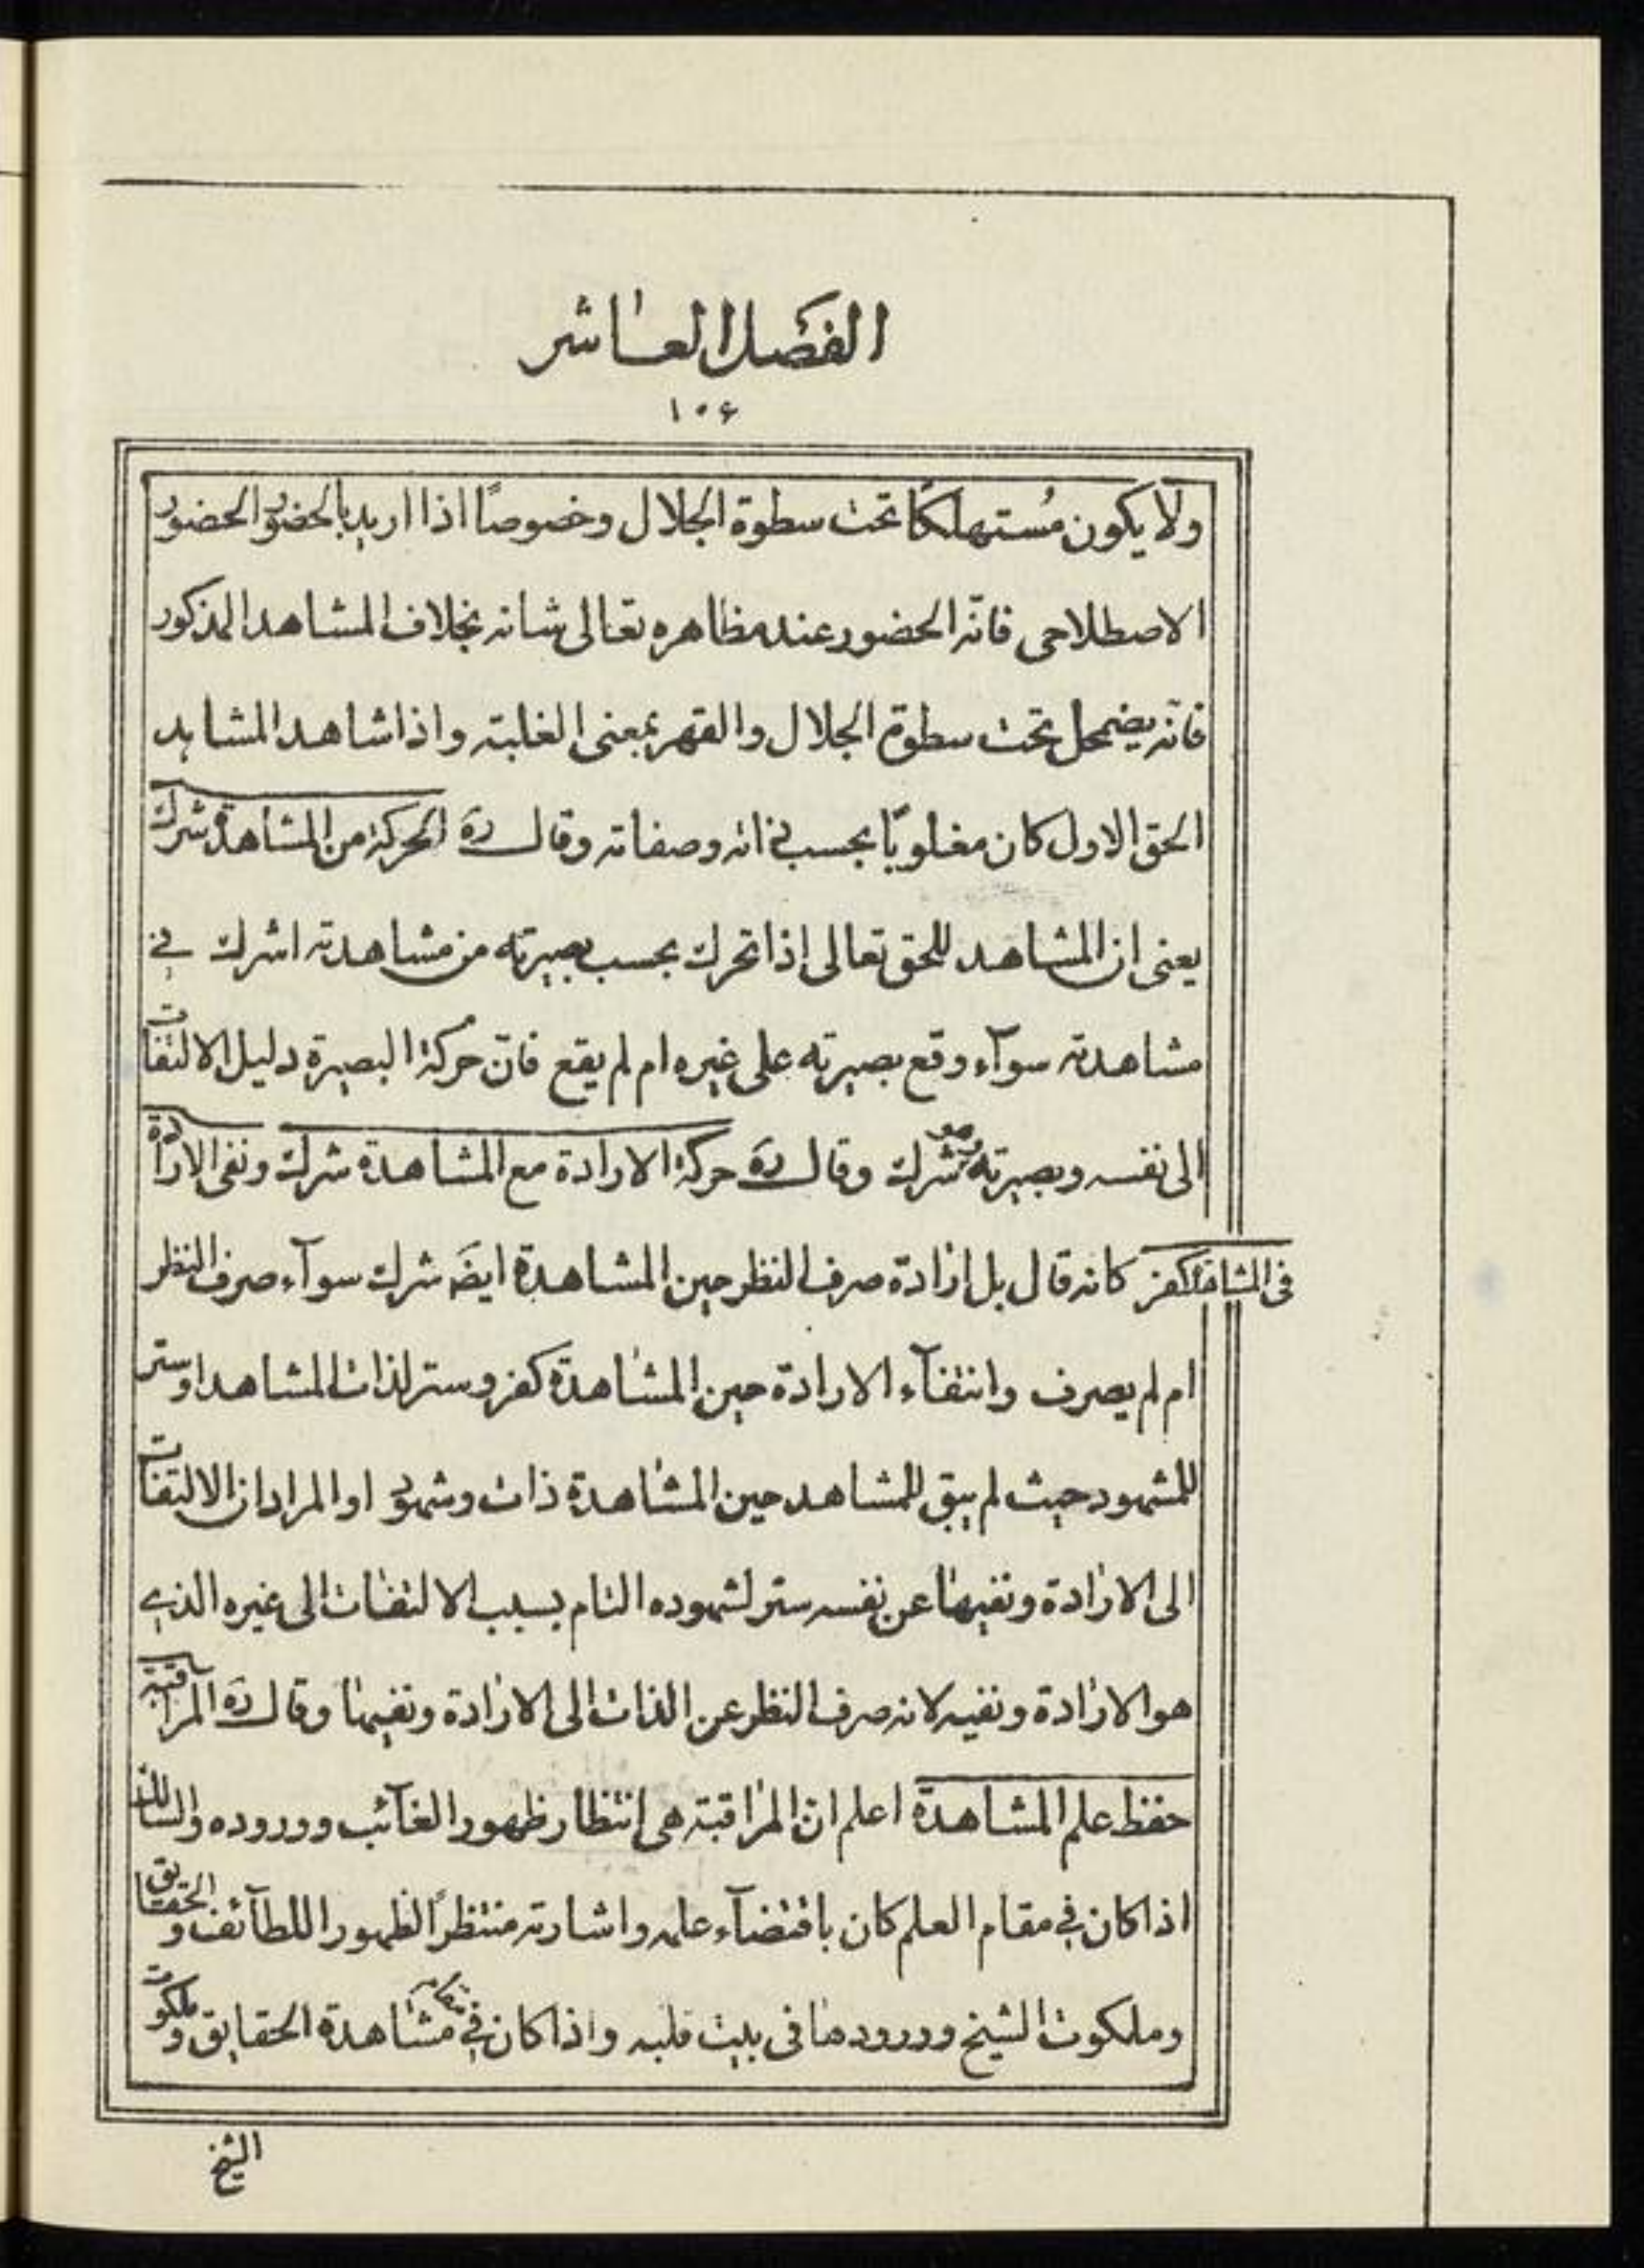 الفصل العاشر
١٠۶
ولا يكون مُستهلكًا تحت سطوة الجلال وخصوصًا اذا اريد بالحضور الحضور
الاصطلاحى فانّه الحضور عند مظاهره تعالى شانه بخلاف المشاهد المذكور
فانّه يضمحل تحت سطوة الجلال والقهر بمعنى الغلبة واذا شاهد المشاهد
الحق الاول كان مغلوبًا بحسب ذاته وصفاته وقال رَه الحركة من المشاهدة شرك
يعنى ان المشاهد للحق تعالى إذا تحرك بحسب بصيرته من مشاهدته اشرك في
مشاهدته سوآء وقع بصيرته على غيره ام لم يقع فانّ حركة البصيرة دليل الالتفات
الى نفسه وبصيرته وهو شرك وقال رَه حركة الارادة مع المشاهدة شرك ونفى الارادة
فى المشاهدة كفر كانه قال بل ارادة صرف النظر حين المشاهدة ايضَ شرك سوآء صرف النظر
ام لم يصرف وانتفآء الارادة حين المشاهدة كفر وستر لذات المشاهد او ستر
للمشهود حيث لم يبق للمشاهد حين المشاهدة ذات وشهود او المراد ان الالتفات
الى الارادة ونفيها عن نفسه ستر لشهوده التام بسبب الالتفات الى غيره الذي
هو الارادة ونفيه لانه صرف النظر عن الذات الى الارادة ونفيها وقال رَه المراقبة
حفظ علم المشاهدة اعلم ان المراقبة هى انتظار ظهور الغآئب ووروده والسالك
اذا كان في مقام العلم كان باقتضآء علمه واشارته منتظرًا لظهور اللطآئف والحقايق
وملكوت الشيخ وورودها فى بيت قلبه واذا كان في مقام مشاهدة الحقايق وملكوت
الشيخ